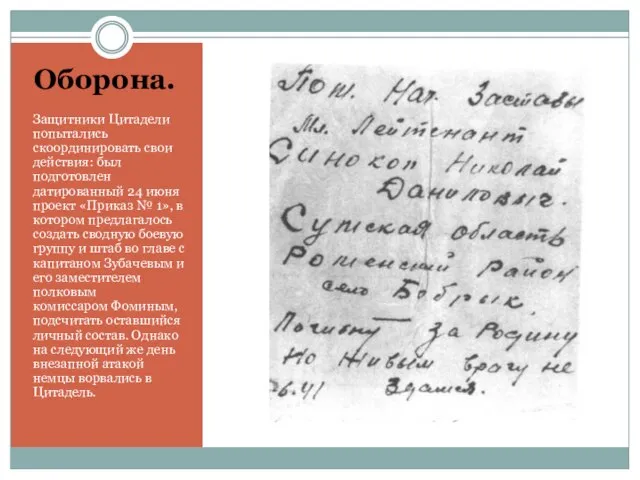 Оборона.
Защитники Цитадели
попытались
скоординировать свои
действия: был
подготовлен
датированный 24 июня
проект «Приказ № 1», в
котором предлагалось
создать сводную боевую
группу и штаб во главе с
капитаном Зубачевым и
его заместителем
полковым
комиссаром Фоминым,
подсчитать оставшийся
личный состав. Однако
на следующий же день
внезапной атакой
немцы ворвались в
Цитадель.
Пом. Нач. Заставы
Мл. Лейтенант
Синокоп Николай
Данилович.
Сумская область
Роменский Район
село Бобрык
Погибну за Родину
Но живым врагу не
6.41 Здамся.